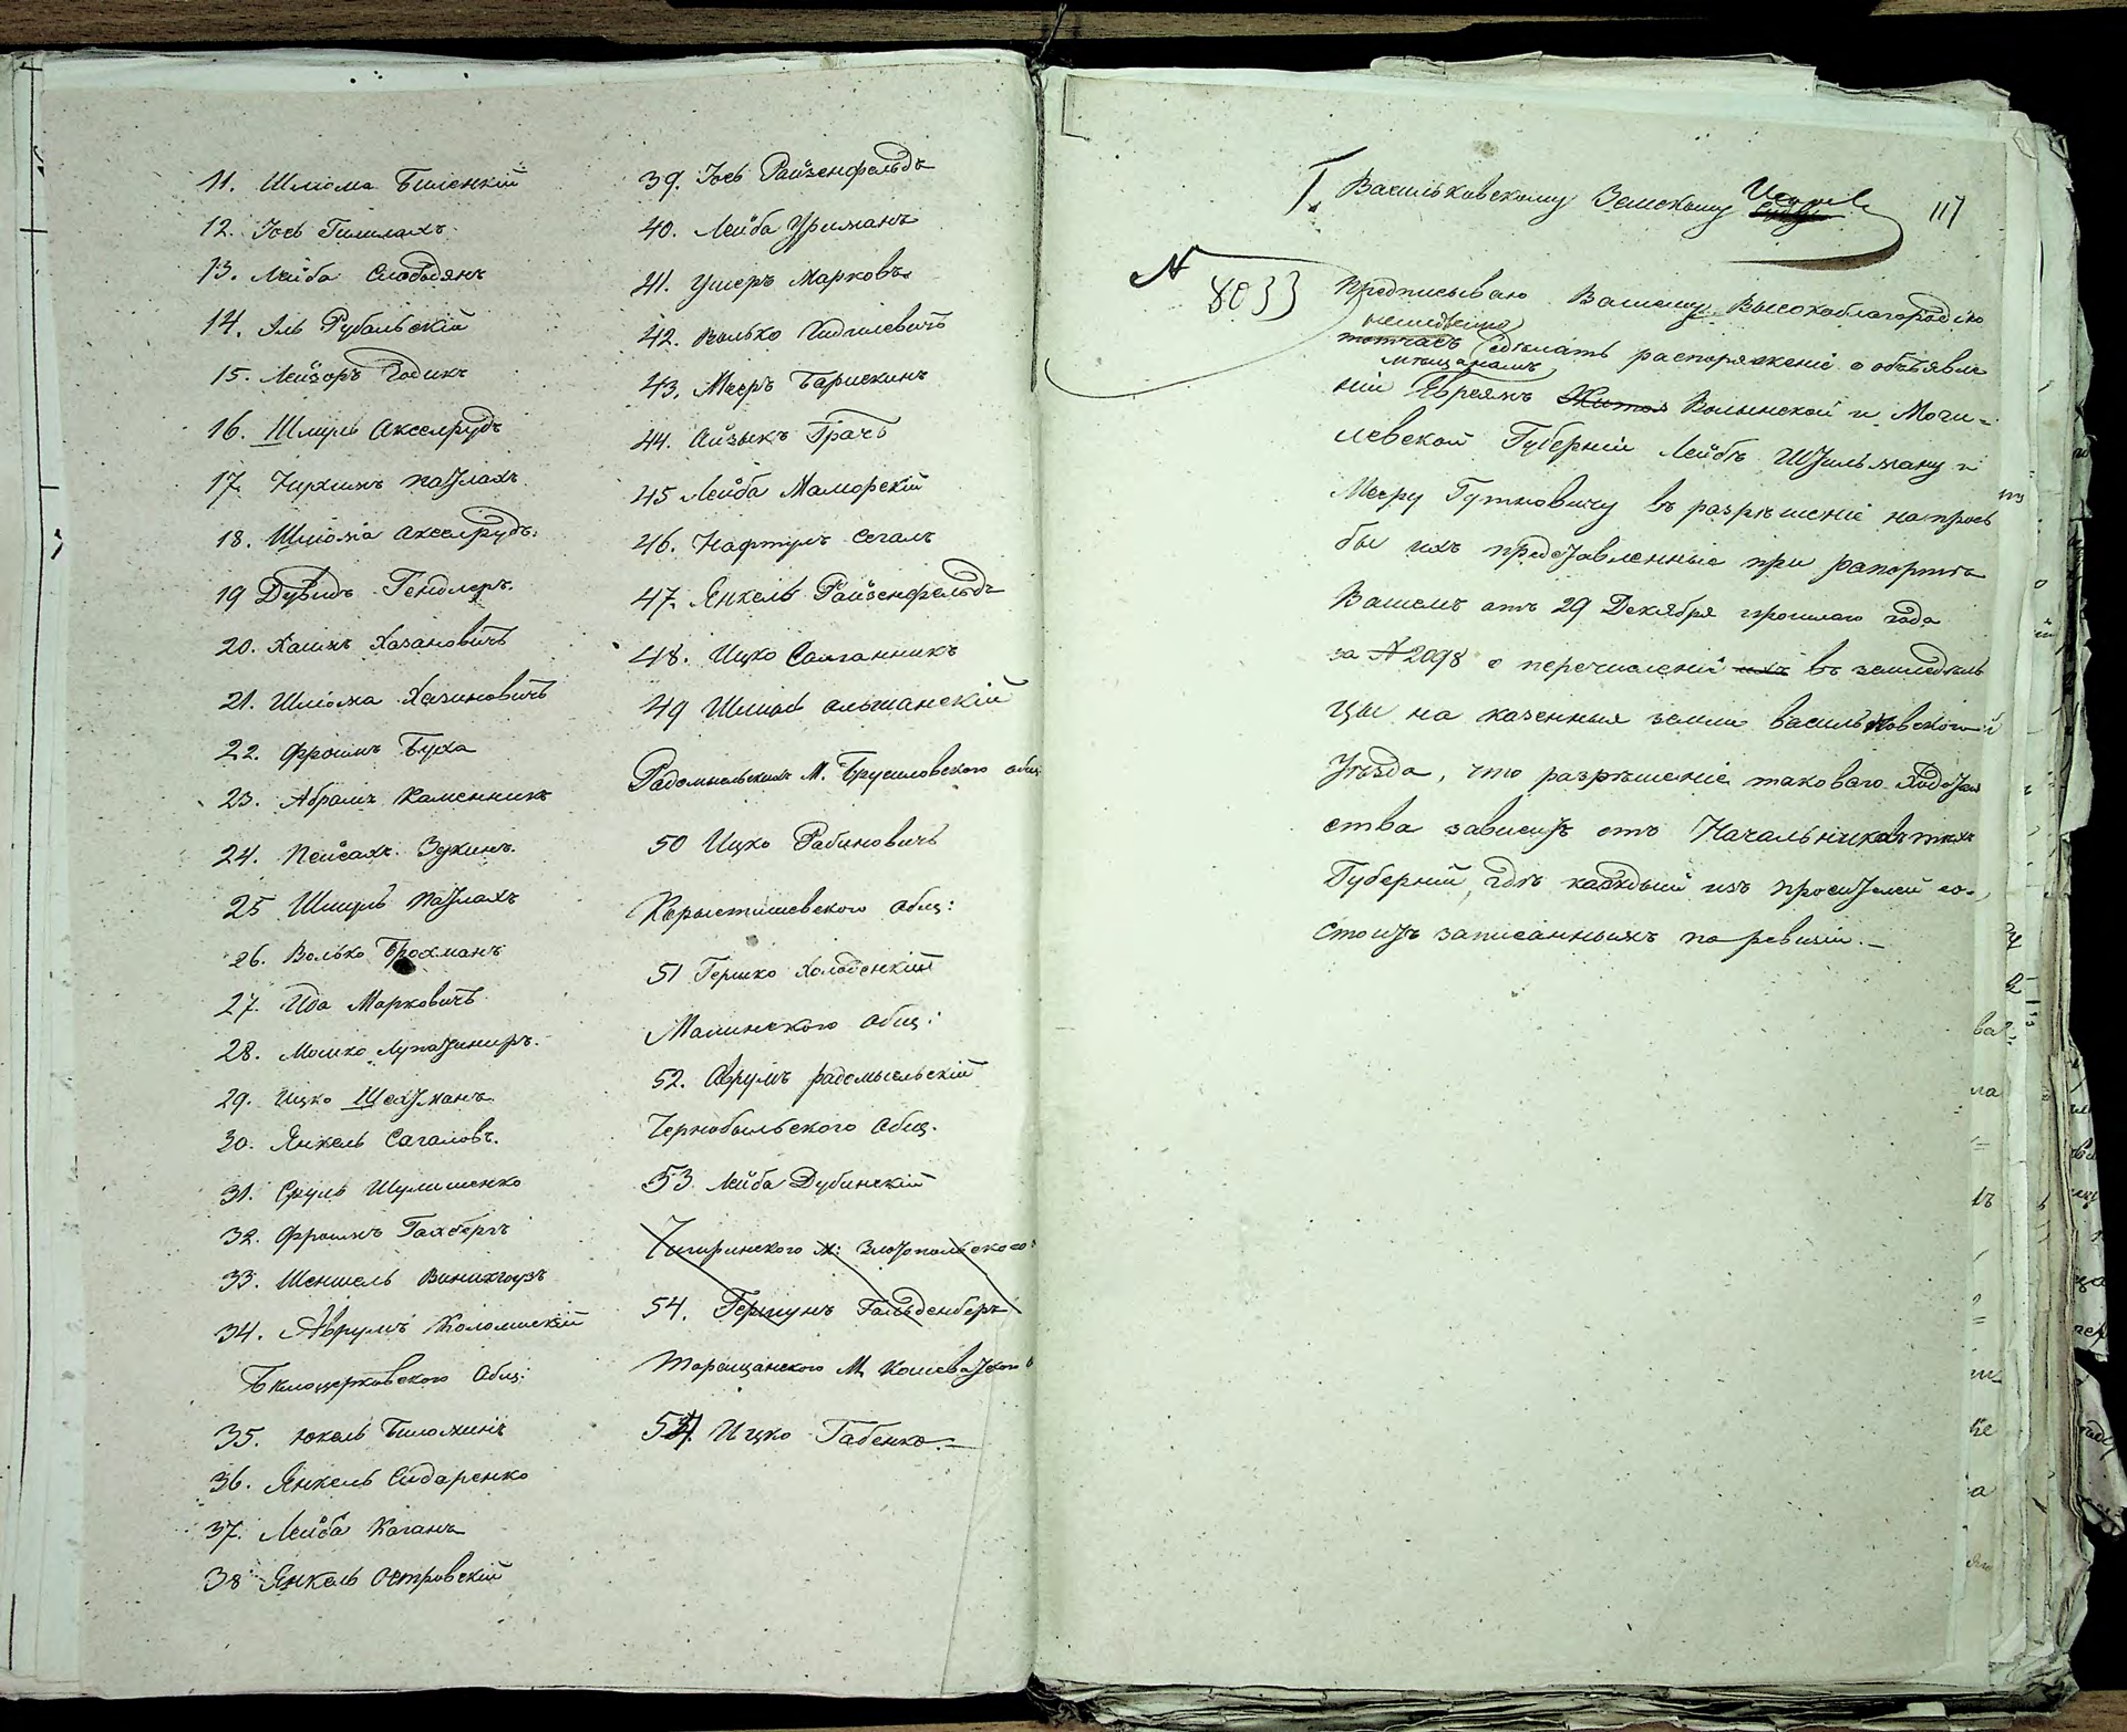 11. Шліома Биленкій
12. Іосъ Гилилахъ
13. Лейба Слободянъ
14. Эль Рубальскій
15. Лейзоръ Годикъ
16. Шмуль Акселрудъ
17. Нухимъ Патлахъ
18. Шліома Акселрудъ
19 Дувидъ Гендлеръ.
20. Хаимъ Хазановичъ
21. Шліома Хазиновичъ
22. Фроимъ Буха
23. Абрамъ Каменникъ
24. Пейсахъ Зукинъ.
25 Шмуль Патлахъ
26. Волько Брохманъ
27. Ида Марковичъ
28. Мошко Лупатиниръ.
29. Ицко Шехтманъ
30. Янкель Сагаловъ.
31. Сруль Шулишенко
32. Фроимъ Гахбергъ
33. Меншель Винихгузъ
34. Аврумъ Коломискій
Бѣлоцерковского Общ:
35. Юкель Биломинъ
36. Янкель Сидаренко
37. Лейба Каганъ
38 Янкель Островскій
39. Іосъ Райзенфельдъ
40. Лейба Уриманъ
41. Ушеръ Марковъ
42. Волько Хидзилевичъ
43. Мееръ Барискинъ
44. Айзыкъ Грачъ
45 Лейба Маморскій
46. Нафтулъ Сегалъ
47. Янкель Райзенфельдъ
48. Ицко Салганникъ
49 Шмуль Ольшанскій
Радомысльскихъ М. Брусиловского общ
50 Ицко Рабиновичъ
Корыстышевского общ:
51 Гершко Холоденкій
Малинского общ:
52. Аврумъ Радомысльскій
Чернобыльского общ.
53 Лейба Дубинскій
Чигиринского м: Златопольского:
54. Гершунъ Гольденберъ
Таращанского М. Кошеватского
54. Ицко Габенко.—
117
Г. Васильковскому Земскому Исправ Суду
N 8033
Предписываю Вашему Высокоблагородію
немедленно
тотчасъ сдѣлать распоряженіе о объявле
мѣщанамъ
ніи Евреямъ Волынской и Моги-
левской Губерній Лейбѣ Штильману и
Мееру Гутновичу въ разрѣшеніе на прось
бы ихъ представленные при рапортѣ
Вашемъ отъ 29 Декабря прошлаго года
за N 2098 о перечисленіи ихъ въ земледѣль
цы на казенныя земли Васильковского
Уѣзда, что разрѣшеніе таковаго ходатай
ства зависитъ отъ Начальниковъ тѣхъ
Губерній, гдѣ каждый изъ просителей со-
стоитъ записаннымъ по ревизіи.—